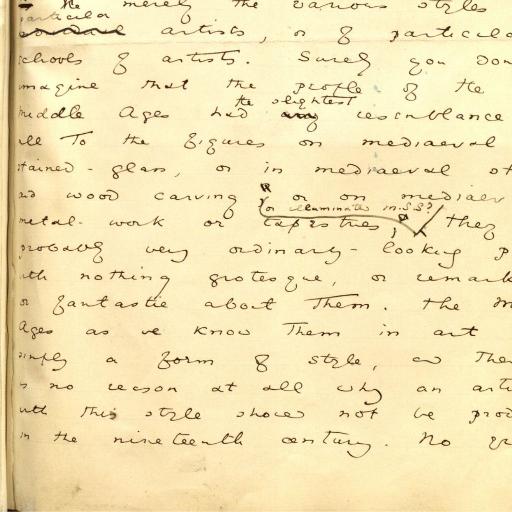 the merely the various styles
particular
artists, or of particula
schools of artists. Surely you don
imagine that the people of the
the slightest
middle Ages had any resemblance
all to the figures on mediaeval
stained-glass, or in mediaeval st
and wood carving, or on mediaev
or illuminated M.S.S?
metal-work or tapestries, they
probably very ordinary-looking p
with nothing grotesque, or remark
or fantastic about them. The M
Ages as we know them in art
simply a form of style, and ther
is no reason at all why an arti
with this style should not be prod
in the nineteenth century. No gr